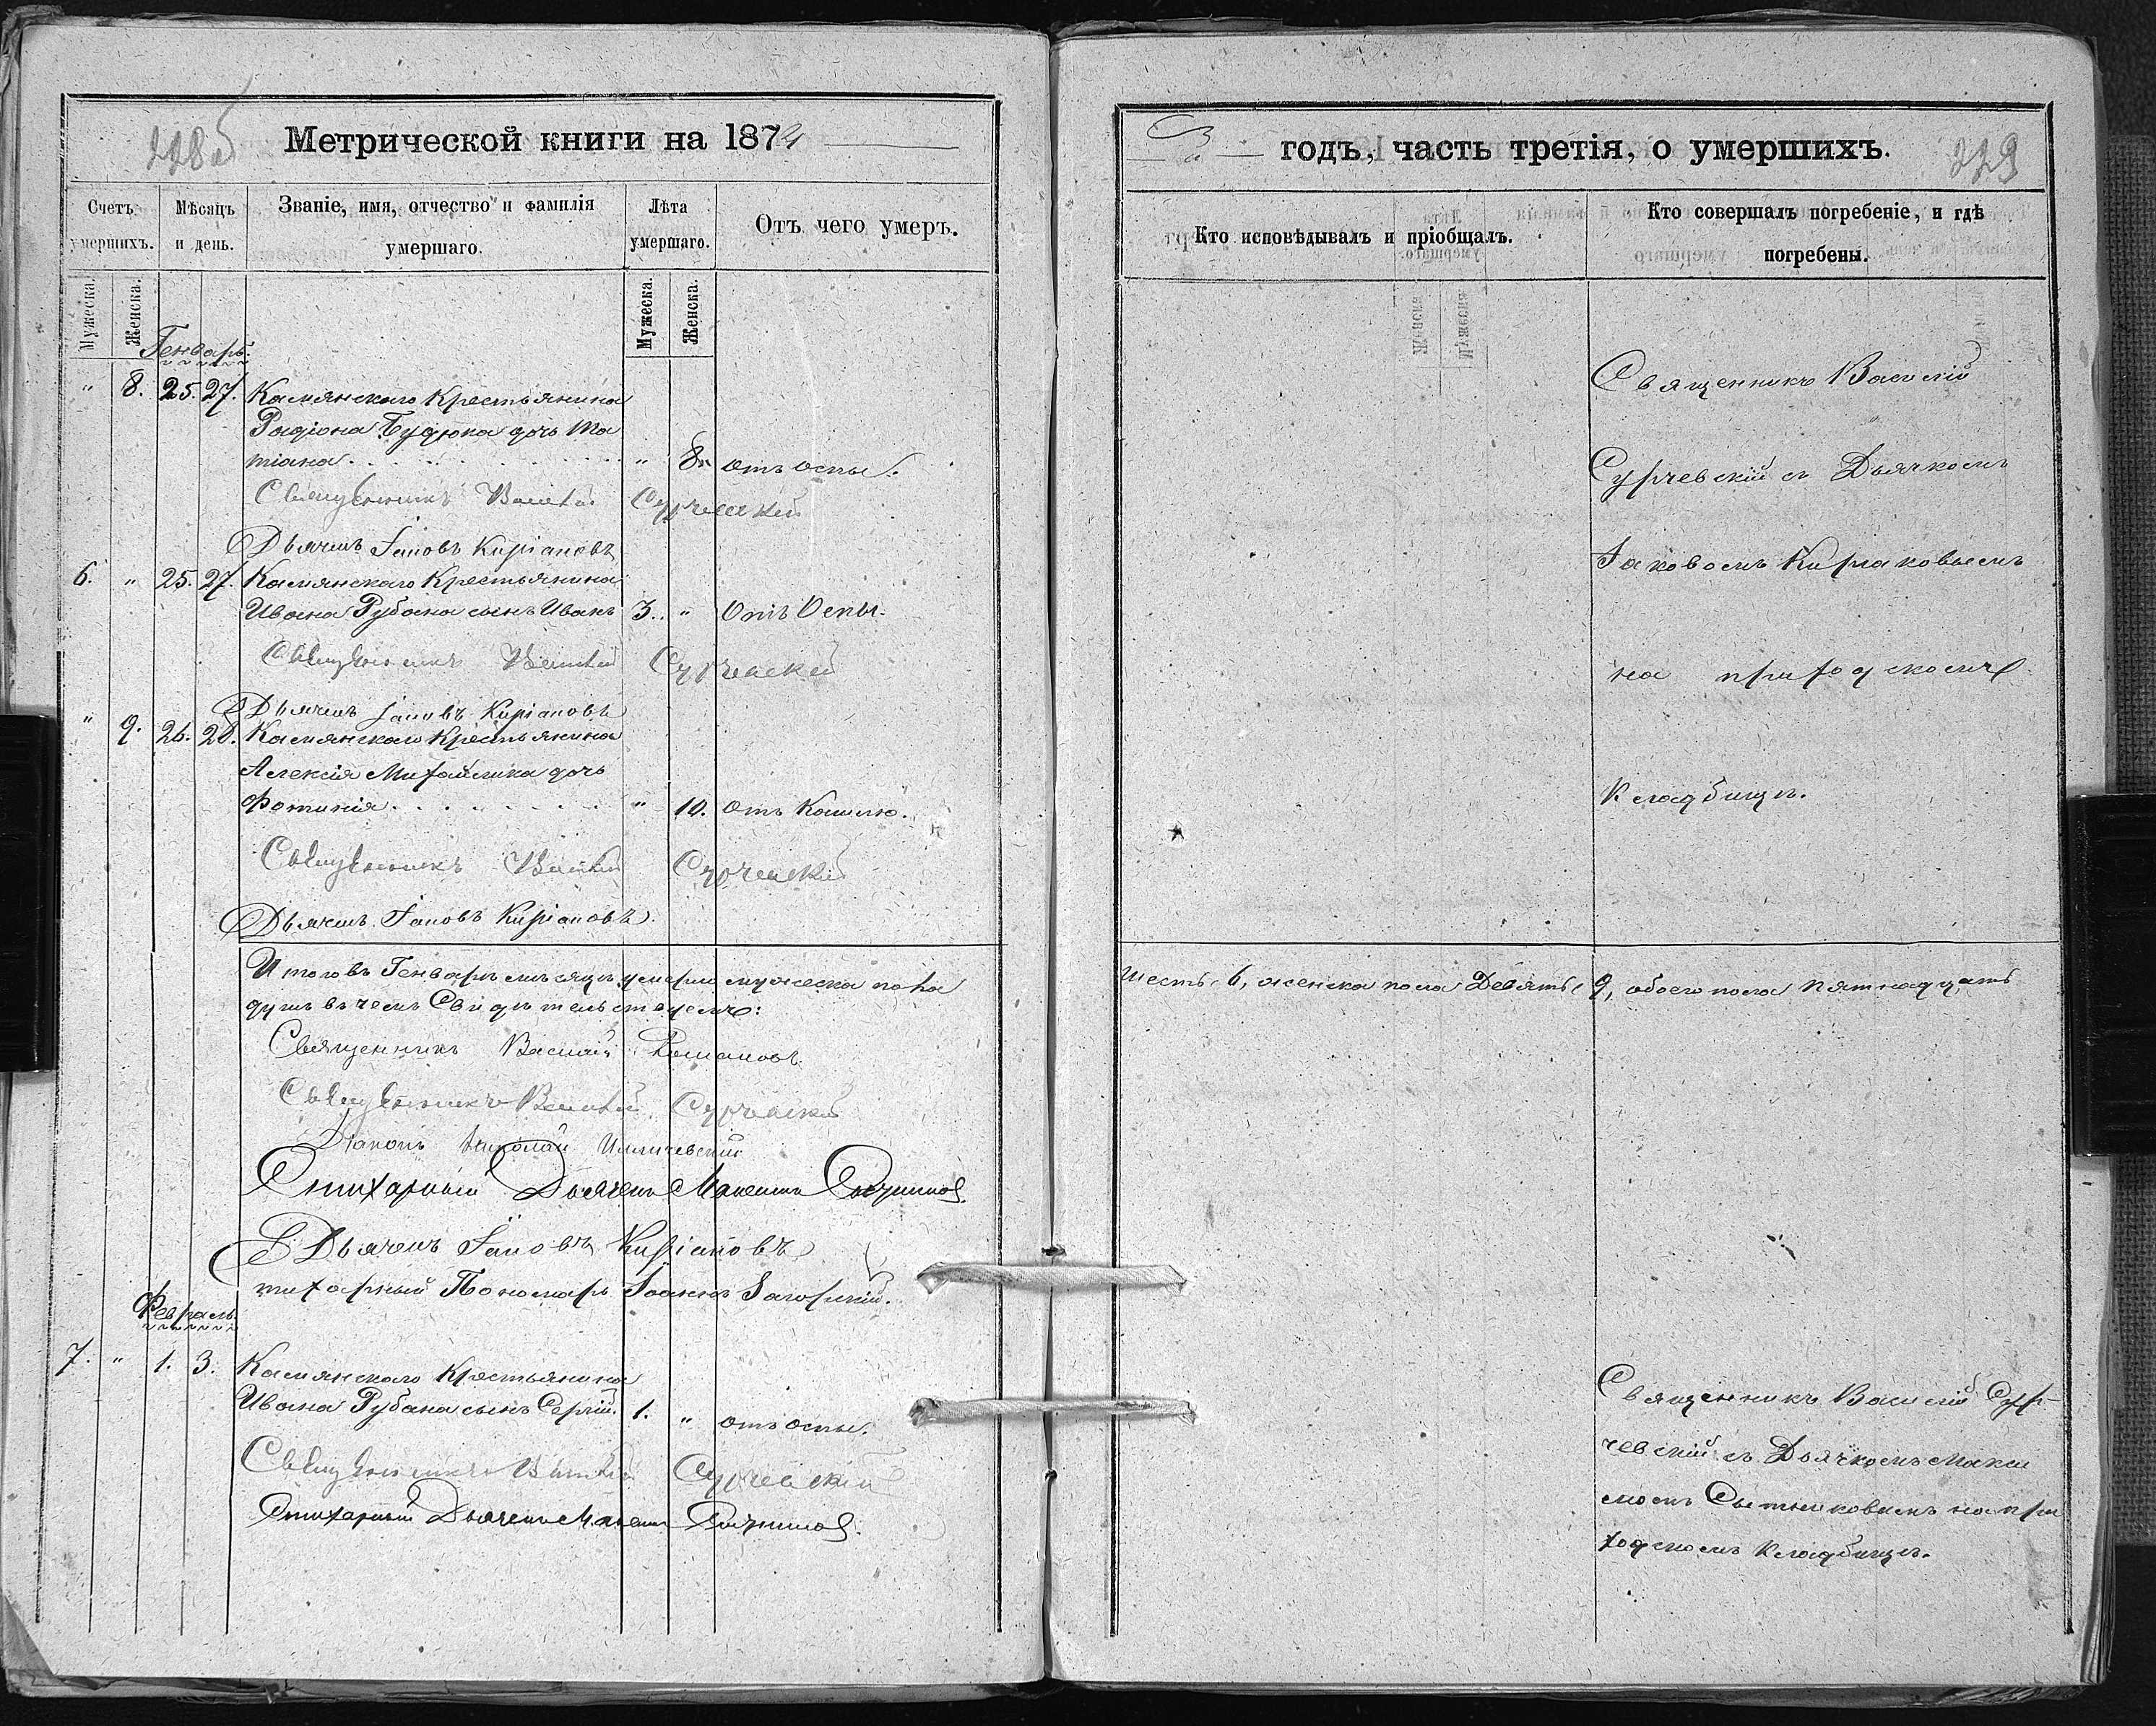 228об
Метрической книги на 1874
Счетъ умершихъ.
Мѣсяцъ и день.
Званіе, имя, отчество и фамилія умершаго.
Лѣта умершаго.
Отъ чего умеръ.
Мужеска.
Женска.
Мужеска.
Женска.
Генварь.
" 8. 25. 27. Камянскаго Крестьянина
Радіона Будюка дочь Та
тіана " 8. отъ оспы.
Священникъ Василій Сурчевскій
Дьячекъ Іаковъ Киріаковъ
6. " 25. 27. Камянскаго Крестьянина
Ивана Рубана сынъ Иванъ 3. " Отъ Оспы.
Священникъ Василій Сурчевскій
Дьячекъ Іаковъ Киріаковъ
" 9. 26. 28. Камянскаго Крестьянина
Алексія Михайлика дочь
Фотинія " 10. отъ Кашлю.
Священникъ Василій Сурчевскій
Дьячекъ Іаковъ Киріаковъ
Итого въ Генварѣ мѣсяцѣ умерло мужеска пола
душъ въ чемъ Свидѣтельствуемъ:
Священникъ Василій Романовъ
Священникъ Василій Сурчевскій
Діаконъ Николай
Стихарный Дьячекъ Максимъ Сытниковъ.
Дьячекъ Іаковъ Киріаковъ
Стихарный Пономарь Іоаннъ Загорскій.
Февраль
7. " 1. 3. Камянскаго Крестьянина
Ивана Рубана сынъ Сергій. 1. " отъ оспы.
Священникъ Василій Сурчевскій
Стихарный Дьячекъ Максимъ Сытниковъ.
За годъ, часть третія, о умершихъ.
229
Кто исповѣдывалъ и пріобщалъ.
Кто совершалъ погребеніе, и гдѣ погребены.
Священникъ Василій
Сурчевскій съ Дьячкомъ
Іаковомъ Киріаковымъ
на приходскомъ
Кладбищѣ.
шесть, 6, женска пола Девять, 9, обоего пола пятнадцать
Священникъ Василій Сур-
чевскій съ Дьячкомъ Макси
момъ Сытниковымъ на при
ходскомъ Кладбищѣ.